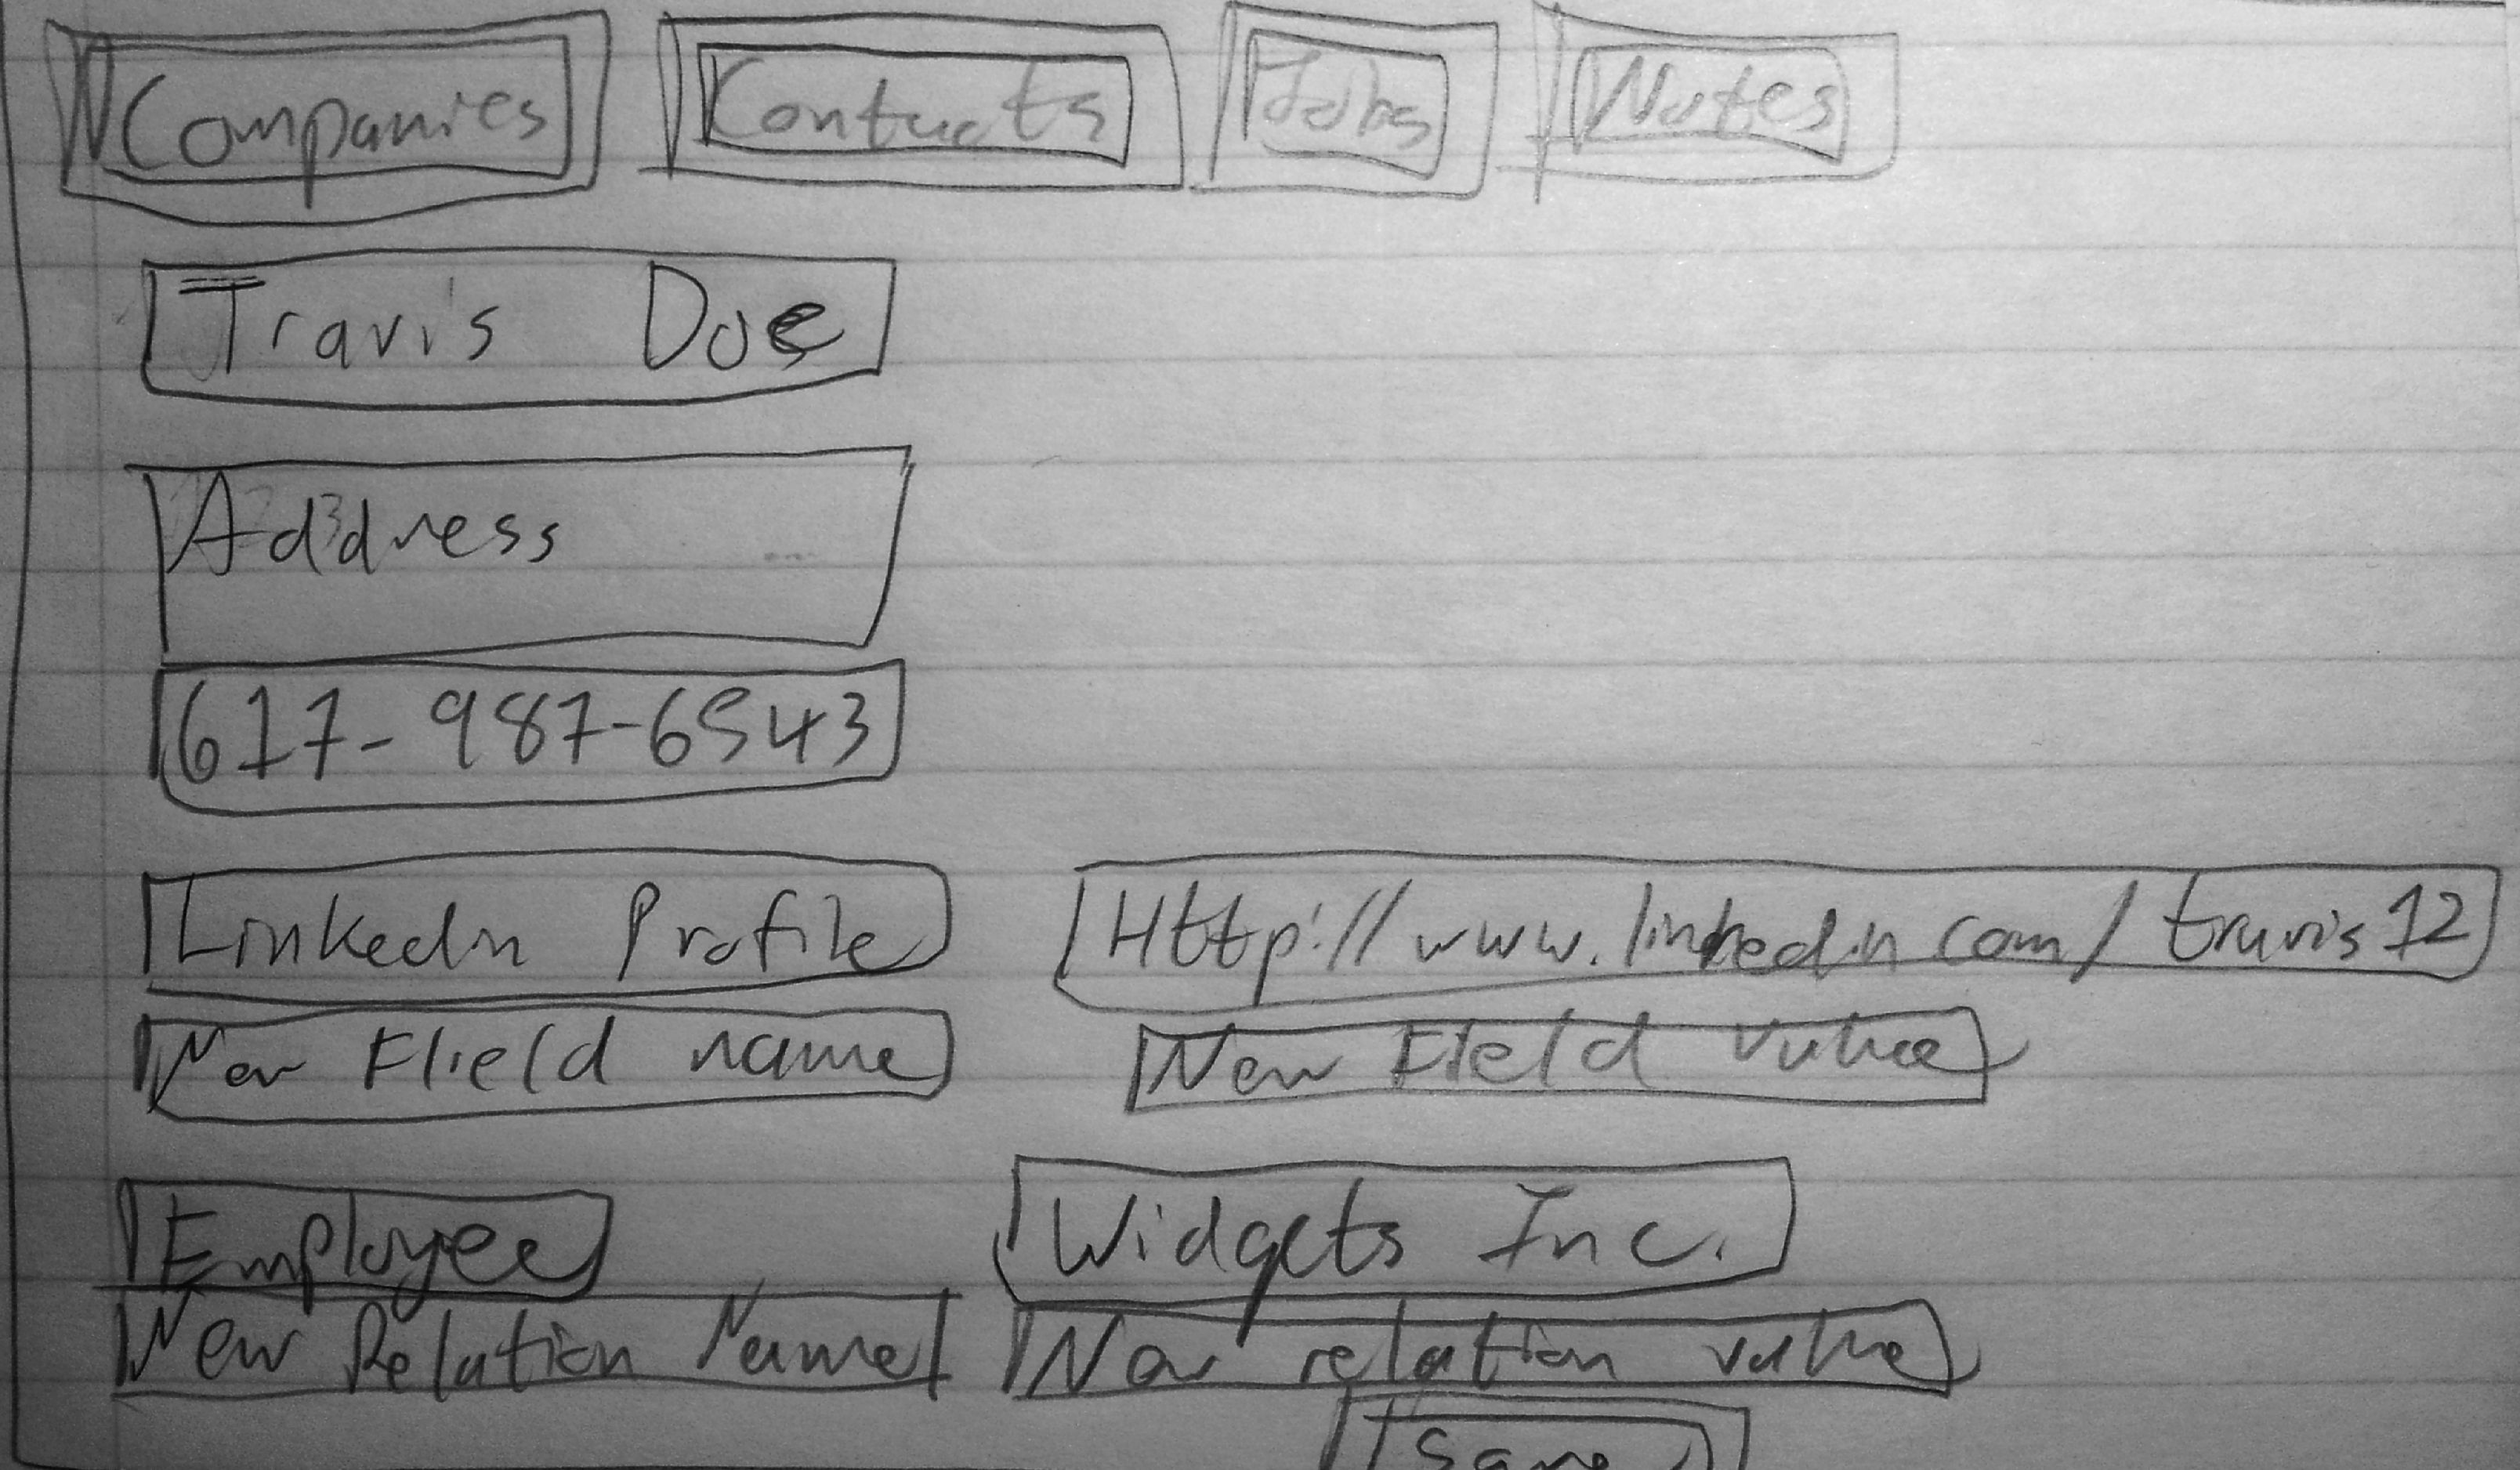 Companies Contacts Jobs Notes
Travis Doe
Address
617-987-6543
LinkedIn Profile Http://www.linkedin.com/travis12
New Field name New Field value
Employee Widgets Inc.
New Relation Name New relation value
Save